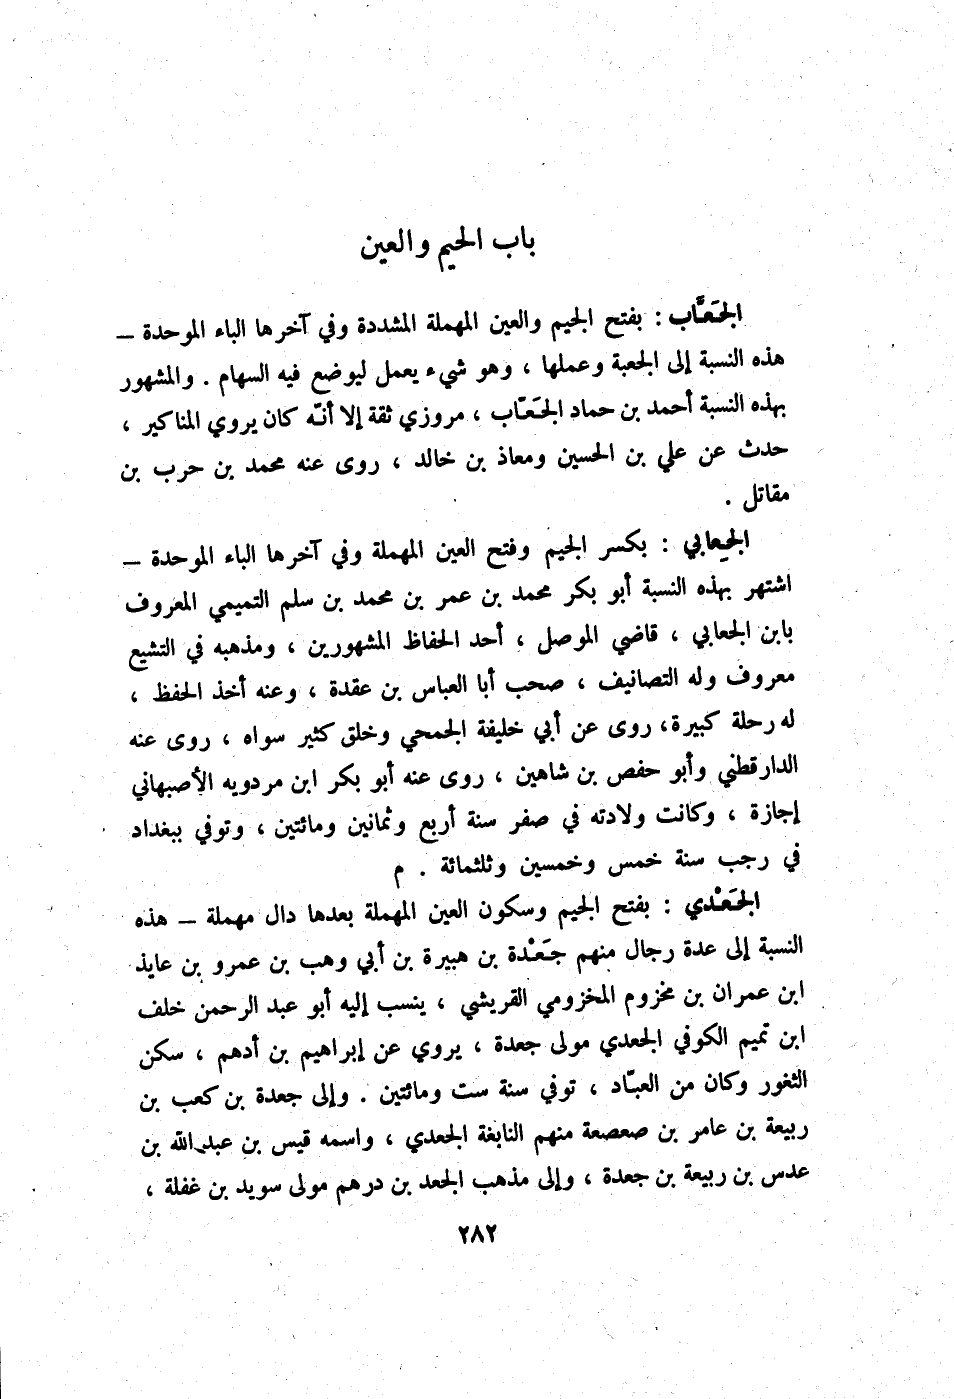 باب الجيم والعين
الجَعَّاب : بفتح الجيم والعين المهملة المشددة وفي آخرها الباء الموحدة –
هذه النسبة إلى الجعبة وعملها ، وهو شيء يعمل ليوضع فيه السهام . والمشهور
بهذه النسبة أحمد بن حماد الجَعّاب ، مروزي ثقة إلا أنّه كان يروي المناكير ،
حدث عن علي بن الحسين ومعاذ بن خالد ، روى عنه محمد بن حرب بن
مقاتل .
الجِعابي : بكسر الجيم وفتح العين المهملة وفي آخرها الباء الموحدة –
اشتهر بهذه النسبة أبو بكر محمد بن عمر بن محمد بن سلم التميمي المعروف
بابن الجعابي ، قاضي الموصل ، أحد الحفاظ المشهورين ، ومذهبه في التشيع
معروف وله التصانيف ، صحب أبا العباس بن عقدة ، وعنه أخذ الحفظ ،
له رحلة كبيرة، روى عن أبي خليفة الجمحي وخلق كثير سواه ، روى عنه
الدارقطني وأبو حفص بن شاهين ، روى عنه أبو بكر ابن مردويه الأصبهاني
إجازة ، وكانت ولادته في صفر سنة أربع وثمانين ومائتين ، وتوفي ببغداد
في رجب سنة خمس وخمسين وثلثمائة . م
الجَعْدي : بفتح الجيم وسكون العين المهملة بعدها دال مهملة – هذه
النسبة إلى عدة رجال منهم جَعْدة بن هبيرة بن أبي وهب بن عمرو بن عايذ
ابن عمران بن مخزوم المخزومي القريشي ، ينسب إليه أبو عبد الرحمن خلف
ابن تميم الكوفي الجعدي مولى جعدة ، يروي عن إبراهيم بن أدهم ، سكن
الثغور وكان من العبّاد ، توفي سنة ست ومائتين . وإلى جعدة بن كعب بن
ربيعة بن عامر بن صعصعة منهم النابغة الجعدي ، واسمه قيس بن عبد الله بن
عدس بن ربيعة بن جعدة ، وإلى مذهب الجعد بن درهم مولى سويد بن غفلة ،
٢٨٢